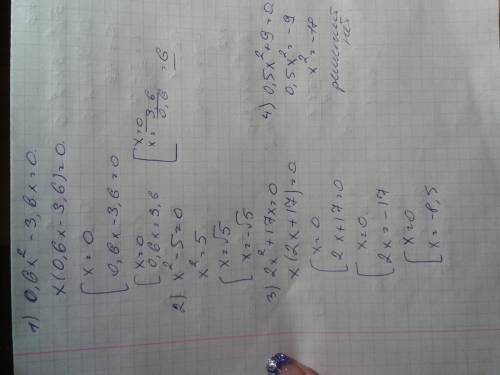 1) 0,6x² - 3,6x = 0
x(0,6x - 3,6) = 0
[x = 0
0,6x - 3,6 = 0
[x = 0
0,6x = 3,6
[x = 0
x = 3,6/0,6 = 6
2) x² - 5 = 0
x² = 5
[x = √5
x = -√5
3) 2x² + 17x = 0
x(2x + 17) = 0
[x = 0
2x + 17 = 0
[x = 0
2x = -17
[x = 0
x = -8,5
4) 0,5x² + 9 = 0
0,5x² = -9
x² = -18
решений
нет